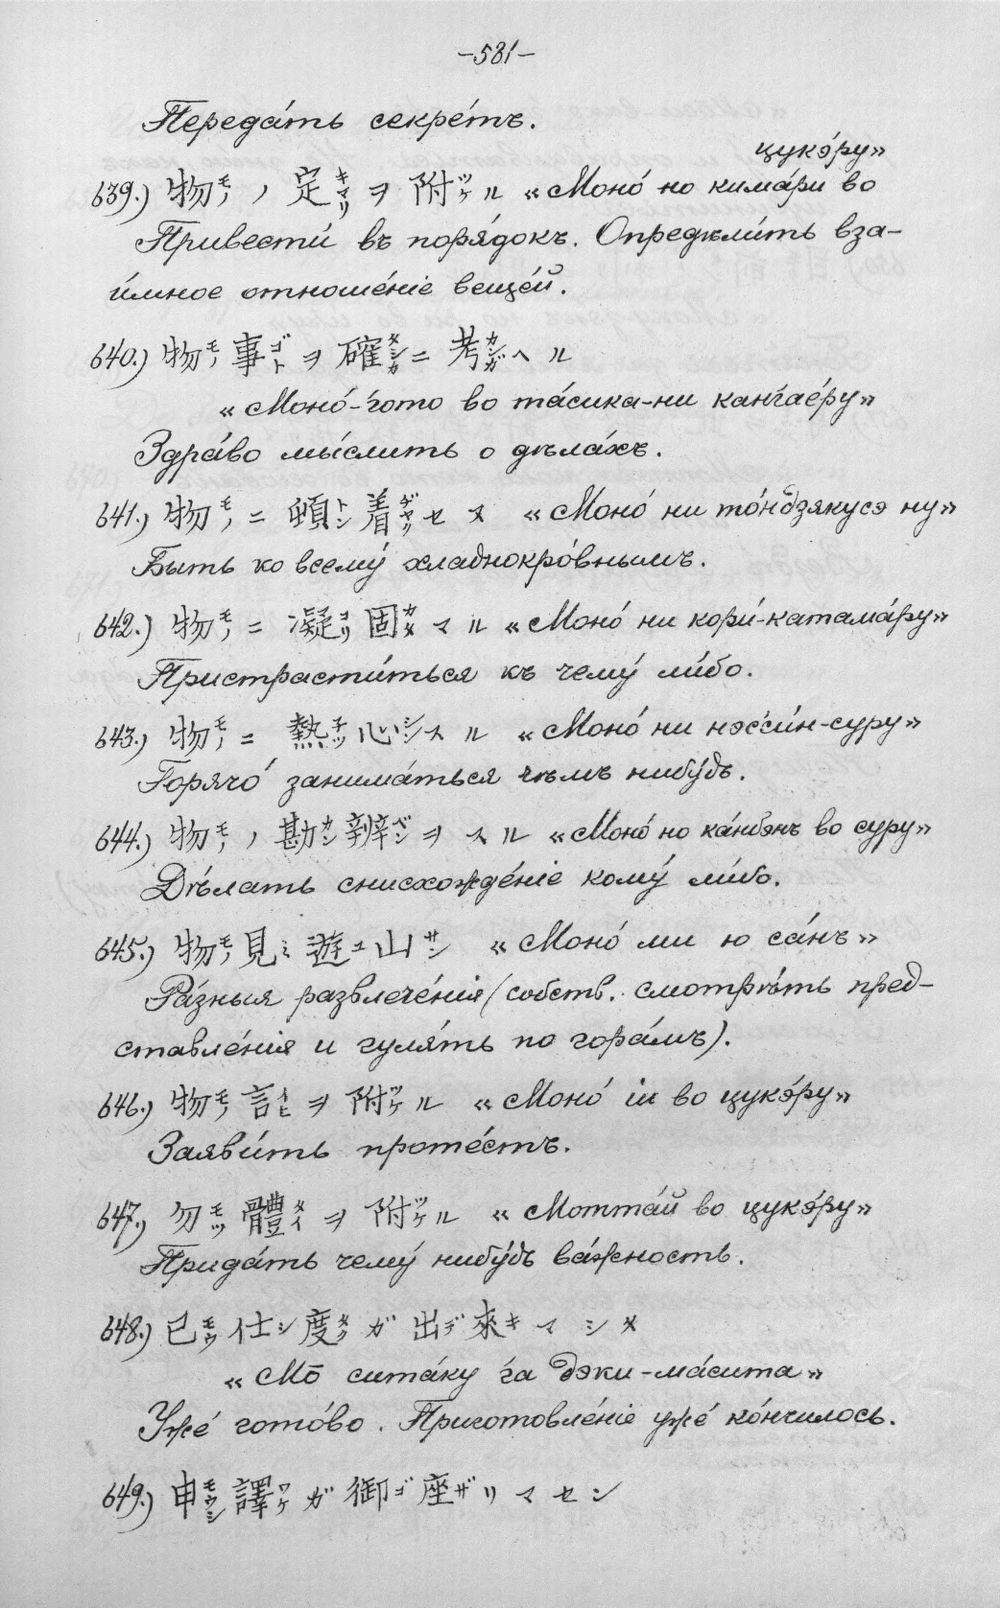 –581–
Переда́ть секре́тъ.
цукэ́ру»
639.) 物モノ ノ 定キマリ ヲ 附ツケ ル «Моно́ но кима́ри во
Привести́ въ поря́докъ. Опредѣли́ть вза-
и́мное отноше́нiе веще́й.
640.) 物モノ 事ゴト ヲ 確タシカ ニ 考カンガ ヘ ル
«Моно́-г̓ото во та́сика-ни канг̓ае́ру»
Здра́во мы́слить о дѣла́хъ.
641.) 物モノ ニ 頓トン 着ヂヤク セ ヌ «Моно́ ни то́ндзякусэ ну»
Быть ко всему́ хладнокро́внымъ.
642.) 物モノ ニ 凝コリ 固カタ マ ル «Моно́ ни кори́-катама́ру»
Пристрасти́ться къ чему́ ли́бо.
643.) 物モノ ニ 熱ネツ 心シン ス ル «Моно́ ни нэс̓си́н-суру»
Горячо́ занима́ться чѣмъ нибу́дь.
644.) 物モノ ノ 勘カン 辨ベン ヲ ス ル «Моно́ но ка́нбэнъ во суру»
Дѣ́лать снисхожде́нiе кому́ ли́бо.
645.) 物モノ 見ミ 遊ユ 山サン «Моно́ ми ю са́нъ»
Ра́зныя развлече́нiя (собств. смотрѣ́ть пред-
ставле́нiя и гуля́ть по гора́мъ).
646.) 物モノ 言イヒ ヲ 附ツケ ル «Моно́ iи во цукэ́ру»
Заяви́ть проте́стъ.
647.) 勿モツ 體タイ ヲ 附ツケ ル «Мотта́й во цукэ́ру»
Прида́ть чему́ нибу́дь ва́жность.
648.) 已モウ 仕シ 度タク ガ 出デ 來キ マ シ タ
«Мо̄ сита́ку г̓а дэки-ма́сита»
Уже́ гото́во. Приготовле́нiе уже́ ко́нчилось.
649.) 申モウシ 譯ワケ ガ 御ゴ 座ザ リ マ セ ン